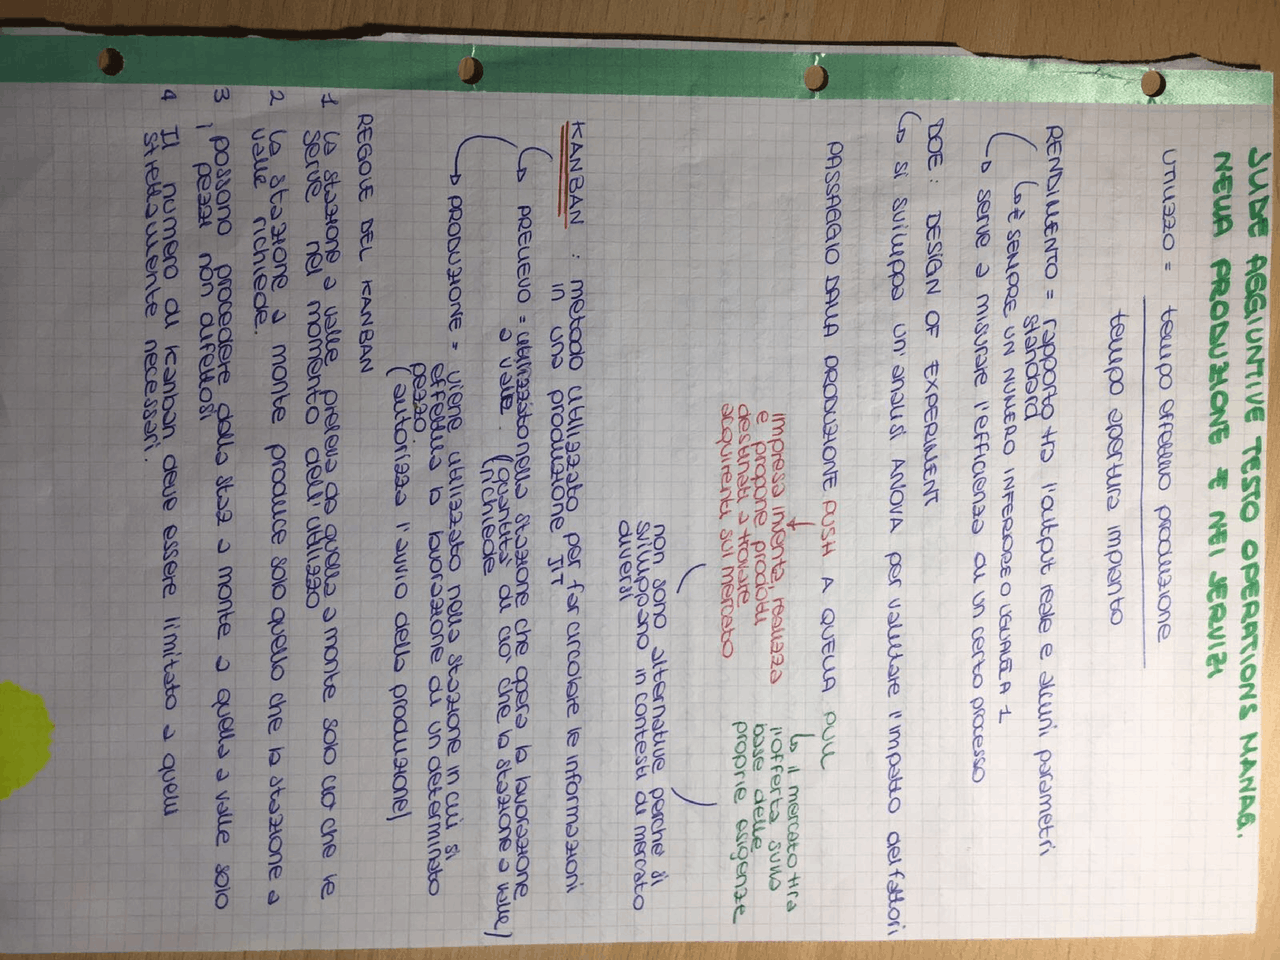 SLIDE AGGIUNTIVE TESTO OPERATIONS MANAG.
NELLA PRODUZIONE E NEI SERVIZI
UTILIZZO = tempo effettivo produzione
tempo apertura impianto
RENDIMENTO = rapporto tra l'output reale e alcuni parametri
standard
↳ È SEMPRE UN NUMERO INFERIORE O UGUALE A 1
↳ serve a misurare l'efficienza di un certo processo
DOE: DESIGN OF EXPERIMENT
↳ si sviluppa un'analisi ANOVA per valutare l'impatto dei fattori
PASSAGGIO DALLA PRODUZIONE PUSH A QUELLA PULL
impresa inventa, realizza
e propone prodotti
destinati a trovare
acquirenti sul mercato
↳ il mercato tira
l'offerta sulla
base delle
proprie esigenze
non sono alternative perchè si
sviluppano in contesti di mercato
diversi
KANBAN : metodo utilizzato per far circolare le informazioni
in una produzione JIT
↳ PRELIEVO = utilizzato nella stazione che opera la lavorazione
a valle. (quantità di ciò che la stazione a valle)
richiede
↳ PRODUZIONE = viene utilizzato nella stazione in cui si
effettua la lavorazione di un determinato
pezzo.
(autorizza l'avvio della produzione)
REGOLE DEL KANBAN
1 la stazione a valle preleva da quella a monte solo ciò che le
serve nel momento dell'utilizzo
2 la stazione a monte produce solo quello che la stazione a
valle richiede.
3 possono procedere dalla staz a monte a quella a valle solo
i pezzi non difettosi
4 Il numero di kanban deve essere limitato a quelli
strettamente necessari.